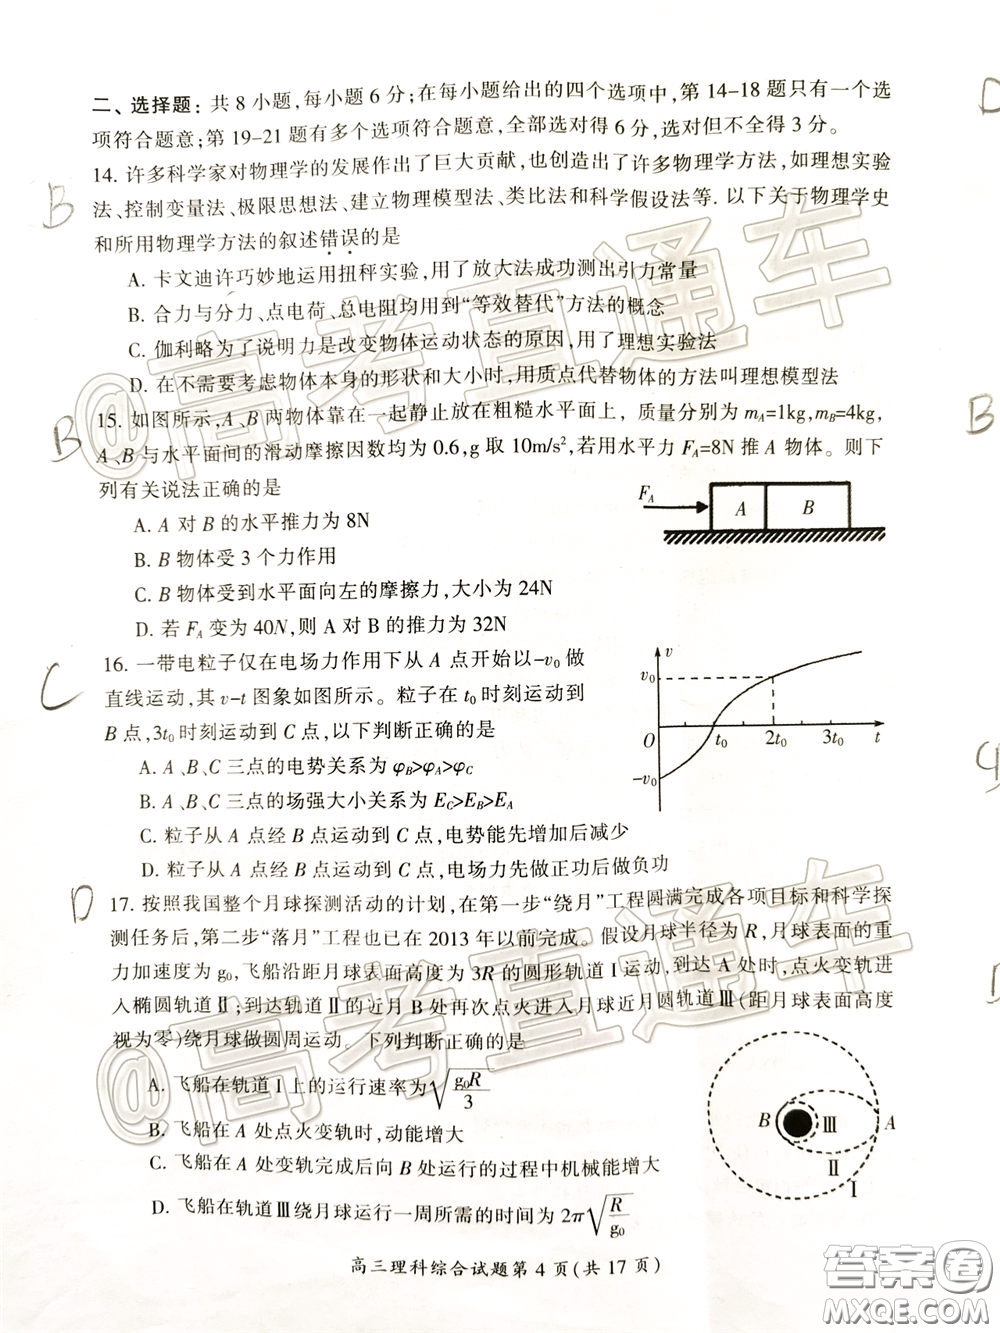 二、选择题：共 8 小题，每小题 6 分；在每小题给出的四个选项中，第 14-18 题只有一个选
项符合题意；第 19-21 题有多个选项符合题意，全部选对得 6 分，选对但不全得 3 分。
B
14. 许多科学家对物理学的发展作出了巨大贡献，也创造出了许多物理学方法，如理想实验
法、控制变量法、极限思想法、建立物理模型法、类比法和科学假设法等. 以下关于物理学史
和所用物理学方法的叙述错误的是
A. 卡文迪许巧妙地运用扭秤实验，用了放大法成功测出引力常量
B. 合力与分力、点电荷、总电阻均用到“等效替代”方法的概念
C. 伽利略为了说明力是改变物体运动状态的原因，用了理想实验法
D. 在不需要考虑物体本身的形状和大小时，用质点代替物体的方法叫理想模型法
B
15. 如图所示，A、B 两物体靠在一起静止放在粗糙水平面上，质量分别为 mA=1kg,mB=4kg,
A、B 与水平面间的滑动摩擦因数均为 0.6,g 取 10m/s²,若用水平力 FA=8N 推 A 物体。则下
列有关说法正确的是
FA
A
B
A. A 对 B 的水平推力为 8N
B. B 物体受 3 个力作用
C. B 物体受到水平面向左的摩擦力，大小为 24N
D. 若 FA 变为 40N,则 A 对 B 的推力为 32N
C
16. 一带电粒子仅在电场力作用下从 A 点开始以-v₀ 做
直线运动，其 v-t 图象如图所示。粒子在 t₀ 时刻运动到
B 点，3t₀ 时刻运动到 C 点，以下判断正确的是
v
v₀
O
t₀
2t₀
3t₀
t
-v₀
A. A、B、C 三点的电势关系为 φB>φA>φC
B. A、B、C 三点的场强大小关系为 EC>EB>EA
C. 粒子从 A 点经 B 点运动到 C 点，电势能先增加后减少
D. 粒子从 A 点经 B 点运动到 C 点，电场力先做正功后做负功
D
17. 按照我国整个月球探测活动的计划，在第一步“绕月”工程圆满完成各项目标和科学探
测任务后，第二步“落月”工程也已在 2013 年以前完成。假设月球半径为 R，月球表面的重
力加速度为 g₀，飞船沿距月球表面高度为 3R 的圆形轨道Ⅰ运动，到达 A 处时，点火变轨进
入椭圆轨道Ⅱ，到达轨道Ⅱ的近月 B 处再次点火进入月球近月圆轨道Ⅲ（距月球表面高度
视为零）绕月球做圆周运动。下列判断正确的是
A. 飞船在轨道Ⅰ上的运行速率为√(g₀R/3)
B. 飞船在 A 处点火变轨时，动能增大
C. 飞船在 A 处变轨完成后向 B 处运行的过程中机械能增大
D. 飞船在轨道Ⅲ绕月球运行一周所需的时间为 2π√(R/g₀)
B
Ⅲ
A
Ⅱ
Ⅰ
高三理科综合试题第 4 页(共 17 页)
@高考直通车
@高考直通车
答案圈
MXQE.COM